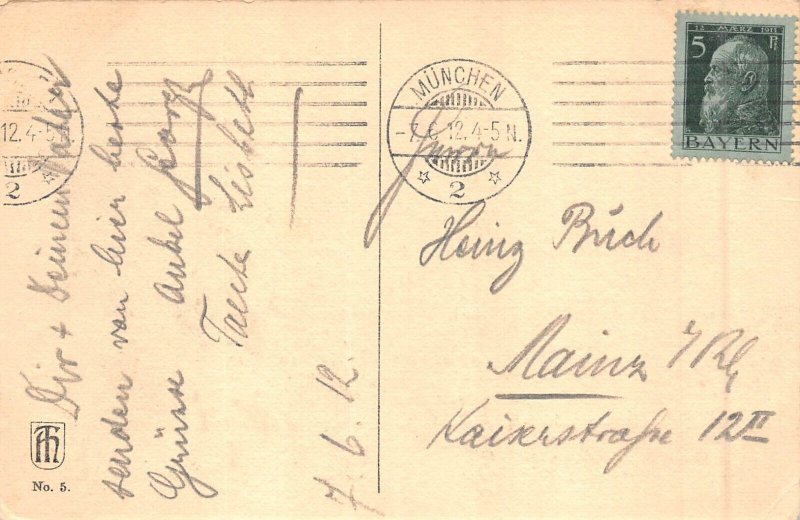 Dir + Deinem Vater
senden von hier beste
Grüsse Onkel Georg
Tante Lisbeth
7.6.12.
TH
No. 5.
MÜNCHEN
-7.6.12.4-5N.
2
12.4-5N.
2
12. MÄRZ 1911
5 Pf.
BAYERN
Heinz Büch
Mainz a/Rh
Kaiserstraße 12II